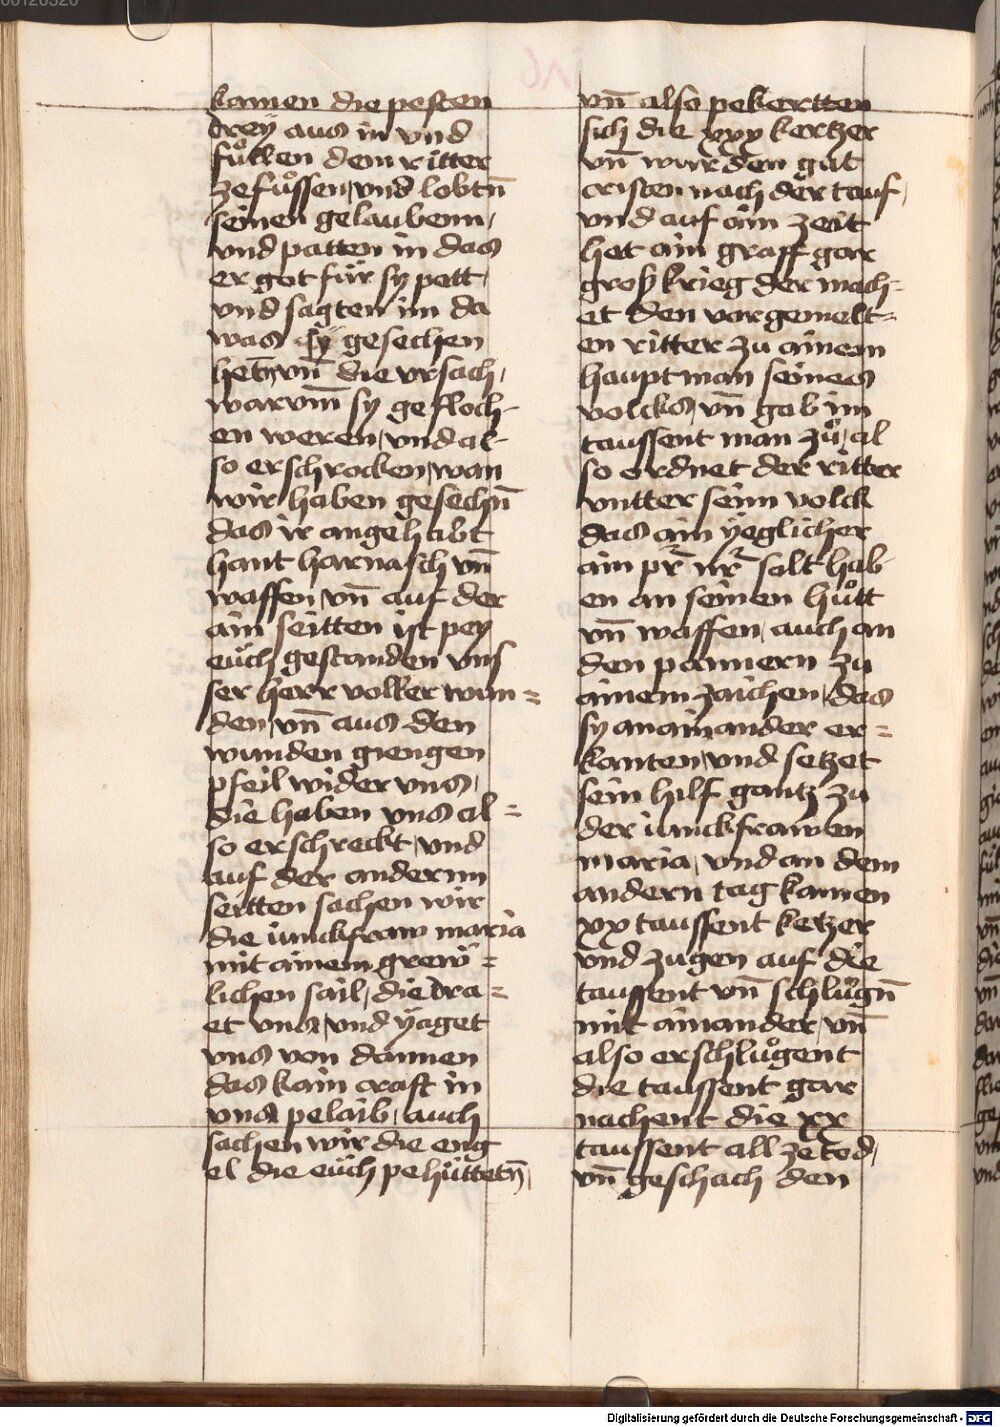 kamen die pesten
drey aus in vnd
fuͦllen dem ritter
ze fuͦssen, vnd lobtn̄
seinen gelaubenn,
vnd patten in das
er got für sy pett,
vnd sagten im da
was sy gesechen
hetn̄, vnd die vrsach,
warvm̄ sy gefloch-
en weren, vnd al-
so erschrocken, wan
wir haben gesechn̄
das ir angehabt
hant harnasch vn̄
waffen, vn̄ auf der
ain seitten ist pey
eüch gestanden vns
ser herr voller wun=
den, vn̄ aus den
wunden giengen
pfeil wider vns,
die haben vns al=
so erschreckt, vnd
auf der anderm
seitten sachen wir
die iunckfraw maria
mit ainem greẅ=
lichen sail, die dra=
et vns, vnd yaget
vns von dannen
das kain craft in
vns pelaib, auch
sachen wir die eng
el die eüch pehüttetn̄,
vn̄ also pekertten
sich die xxx kertzer
vn̄ wurden gůt
cristen nach der tauf,
vnd auf ain zeit
het ain graff gar
gros krieg der mach=
et den vorgemelt=
en ritter zu ainem
hauptman seines
volcks, vn̄ gab im
taussent man zuͦ, al
so ordnet der ritter
vntter seim volck
das ain yeglicher
ain pr̄ nr̄ solt hab
en an seinen huͦtt
vn̄ waffen, auch an
den pannern zu
ainem zaichen, das
sy anainander er=
kanten, vnd setzet
sein hilf gantz zu
der iunckfrawen
maria, vnd an dem
andern tag kamen
xx taussent ketzer
vnd zugen auf die
taussent vn̄ schluͦgn̄
mit ainander, vn̄
also erschluͦgent
die taussent gar
nachent die xx
taussent all ze tod,
vn̄ geschach den
Digitalisierung gefördert durch die Deutsche Forschungsgemeinschaft - DFG